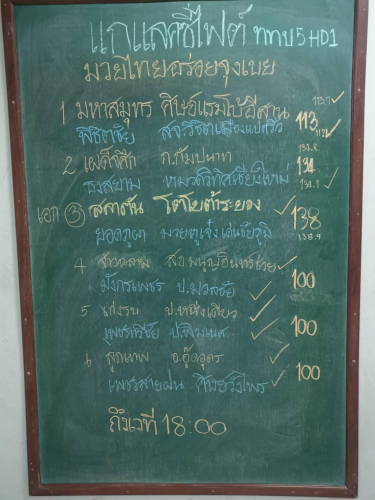 แกแลคซี่ไฟต์ ททบ5HD1
มวยไทยอร่อยจุงเบย
1 มหาสมุทร ศิษย์แรมโบ้อีสาน 113.7 ✓
113
พิชิตชัย ส.จ.วิชิตเมืองแปดริ้ว 112 ✓
2 เผด็จศึก ก.กัมปนาท 134.8
134
ธงสยาม หมวดวิทิศเชียงใหม่ 134.1 ✓
เอก ③ สลาตัน โตโยต้าระยอง ✓
138
ยอดภูผา มวยตู้เจ๋งเด่นชัยภูมิ 138.9
4 สาวฉลาม ส.อินทร์ช่วย ✓
100
มังกรเพชร ป.มวลชัย ✓
5 เก่งรบ ป.หญิงเสียว ✓
100
เพชรศรีชัย ป.พิมเนศ ✓
6 ลูกเทพ อ.อู๊ดอุดร ✓
100
เพชรสายฝน ศิษย์วังไพร ✓
ถึงเวที 18:00